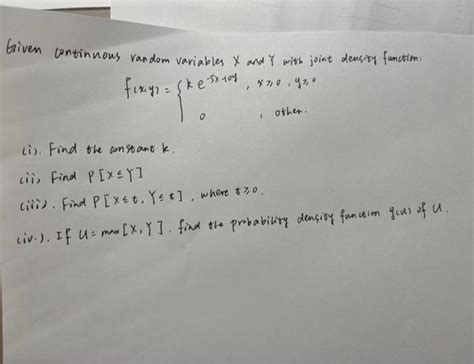 Given continuous random variables X and Y with joint density function:
f(x,y) = { k e^-5x-10y , x≥0, y≥0
0 , other.
(i). Find the constant k.
(ii) Find P[X≤Y]
(iii). Find P[X≤t, Y≤t], where t≥0.
(iv.). If U = max[X,Y]. find the probability density function g(u) of U.